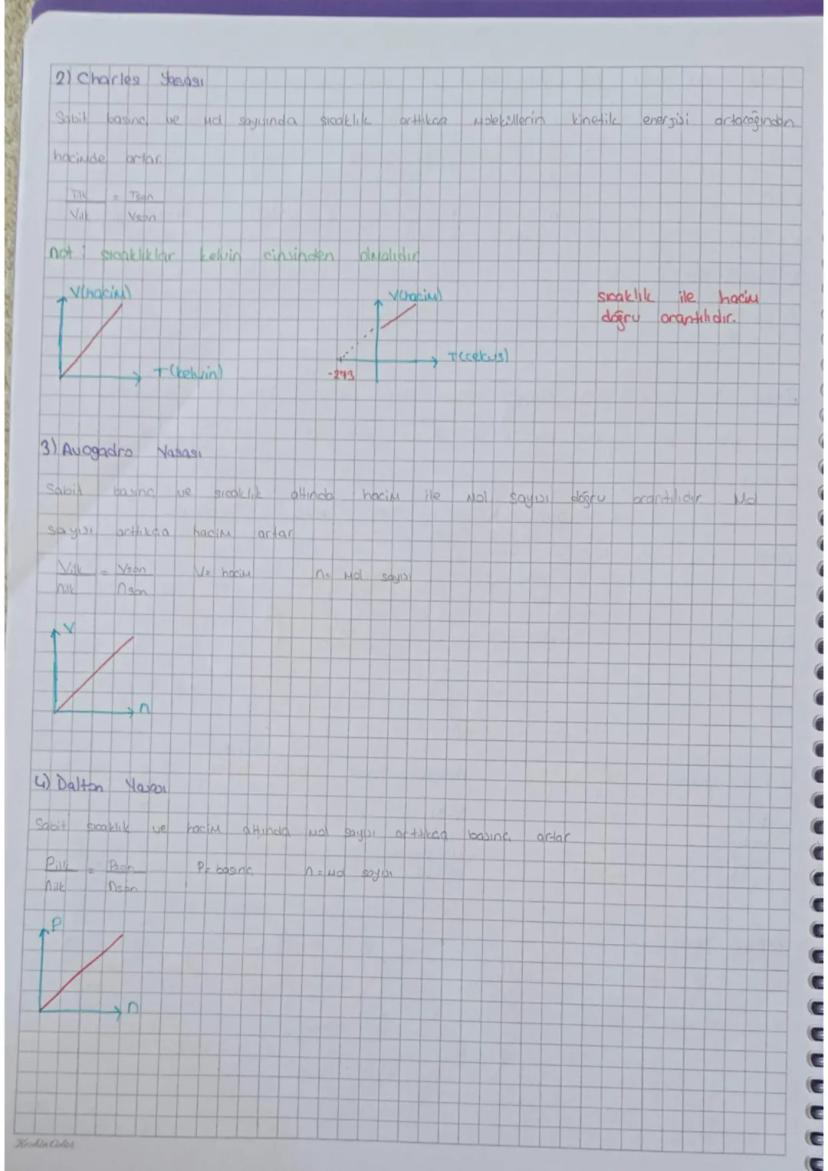 2) Charles Yasası
Sabit basınç ve mol sayısında sıcaklık arttıkça moleküllerin kinetik enerjisi artacağından
hacimde artar.
Tilk = Tson
Vilk Vson
not : sıcaklıklar kelvin cinsinden olmalıdır
V(hacim)
T(kelvin)
V(hacim)
T(celcius)
-273
sıcaklık ile hacim
doğru orantılıdır.
3) Avogadro Yasası
Sabit basınç ve sıcaklık altında hacim ile mol sayısı doğru orantılıdır Mol
sayısı arttıkça hacim artar
Vilk = Vson V= hacim n= mol sayısı
nilk nson
V
n
4) Dalton Yasası
Sabit sıcaklık ve hacim altında mol sayısı arttıkça basınç artar
Pilk = Pson P= basınç n= mol sayısı
nilk nson
P
n